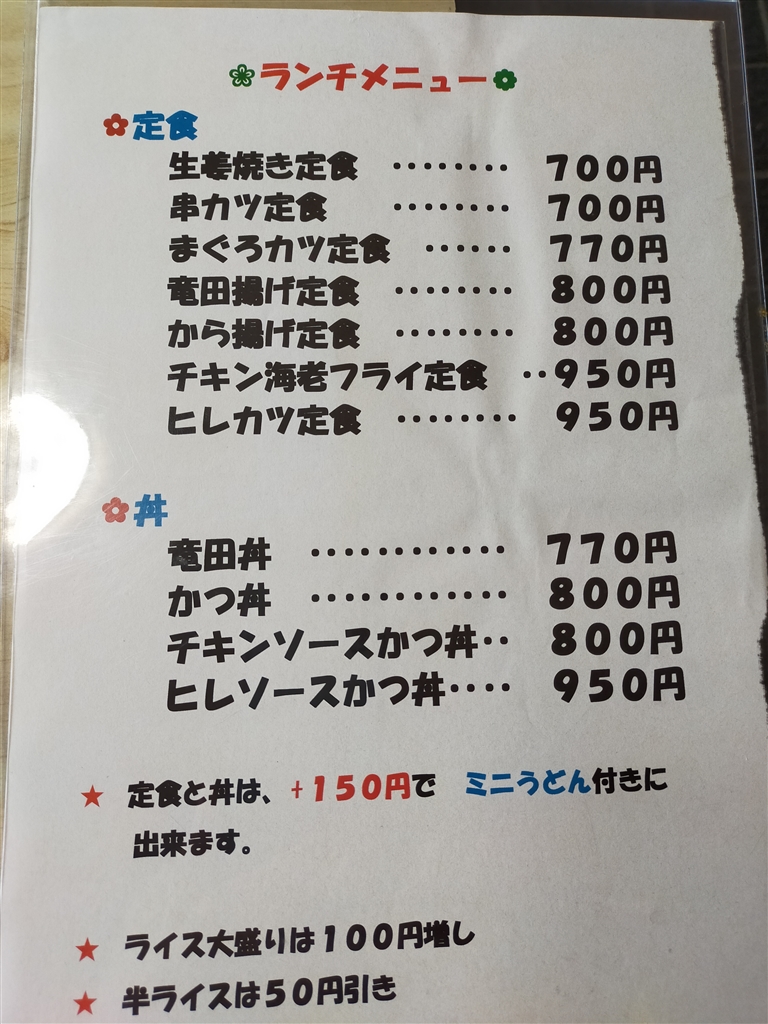 ランチメニュー
定食
生姜焼き定食 ········ 700円
串カツ定食 ········ 700円
まぐろカツ定食 ······ 770円
竜田揚げ定食 ········ 800円
から揚げ定食 ········ 800円
チキン海老フライ定食 ··950円
ヒレカツ定食 ········ 950円
丼
竜田丼 ············ 770円
かつ丼 ············ 800円
チキンソースかつ丼·· 800円
ヒレソースかつ丼···· 950円
★ 定食と丼は、+150円で ミニうどん付きに
出来ます。
★ ライス大盛りは100円増し
★ 半ライスは50円引き